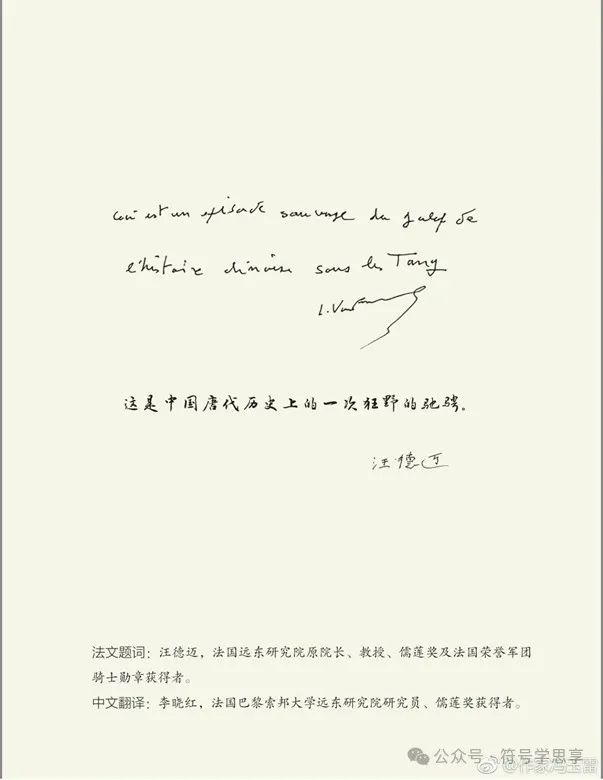 Ceci est un épisode sauvage du galop de
l'histoire chinoise sous les Tang
L. Vandermeersch
这是中国唐代历史上的一次狂野的驰骋。
汪德迈
法文题词：汪德迈，法国远东研究院原院长、教授、儒莲奖及法国荣誉军团
骑士勋章获得者。
中文翻译：李晓红，法国巴黎索邦大学远东研究院研究员、儒莲奖获得者。
公众号·符号学思享
@作家冯玉雷